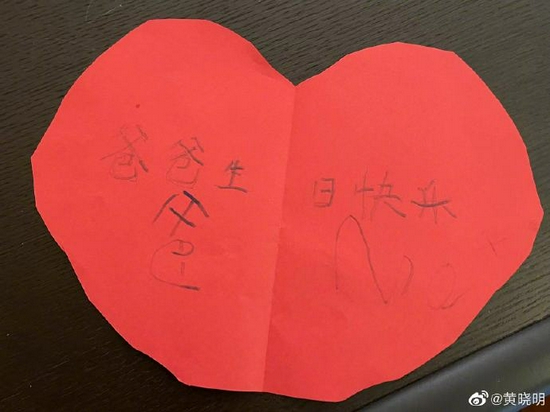 爸爸生日快乐
@黄晓明